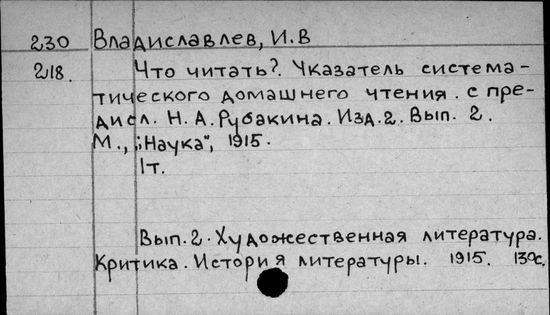 230 Владиславлев, И.В
218. Что читать?. Указатель система-
тического домашнего чтения. с пре-
дисл. Н.А. Рубакина. Изд.2. Вып. 2.
М., "Наука", 1915.
1т.
Вып.2. Художественная литература.
Критика. История литературы. 1915. 130с.